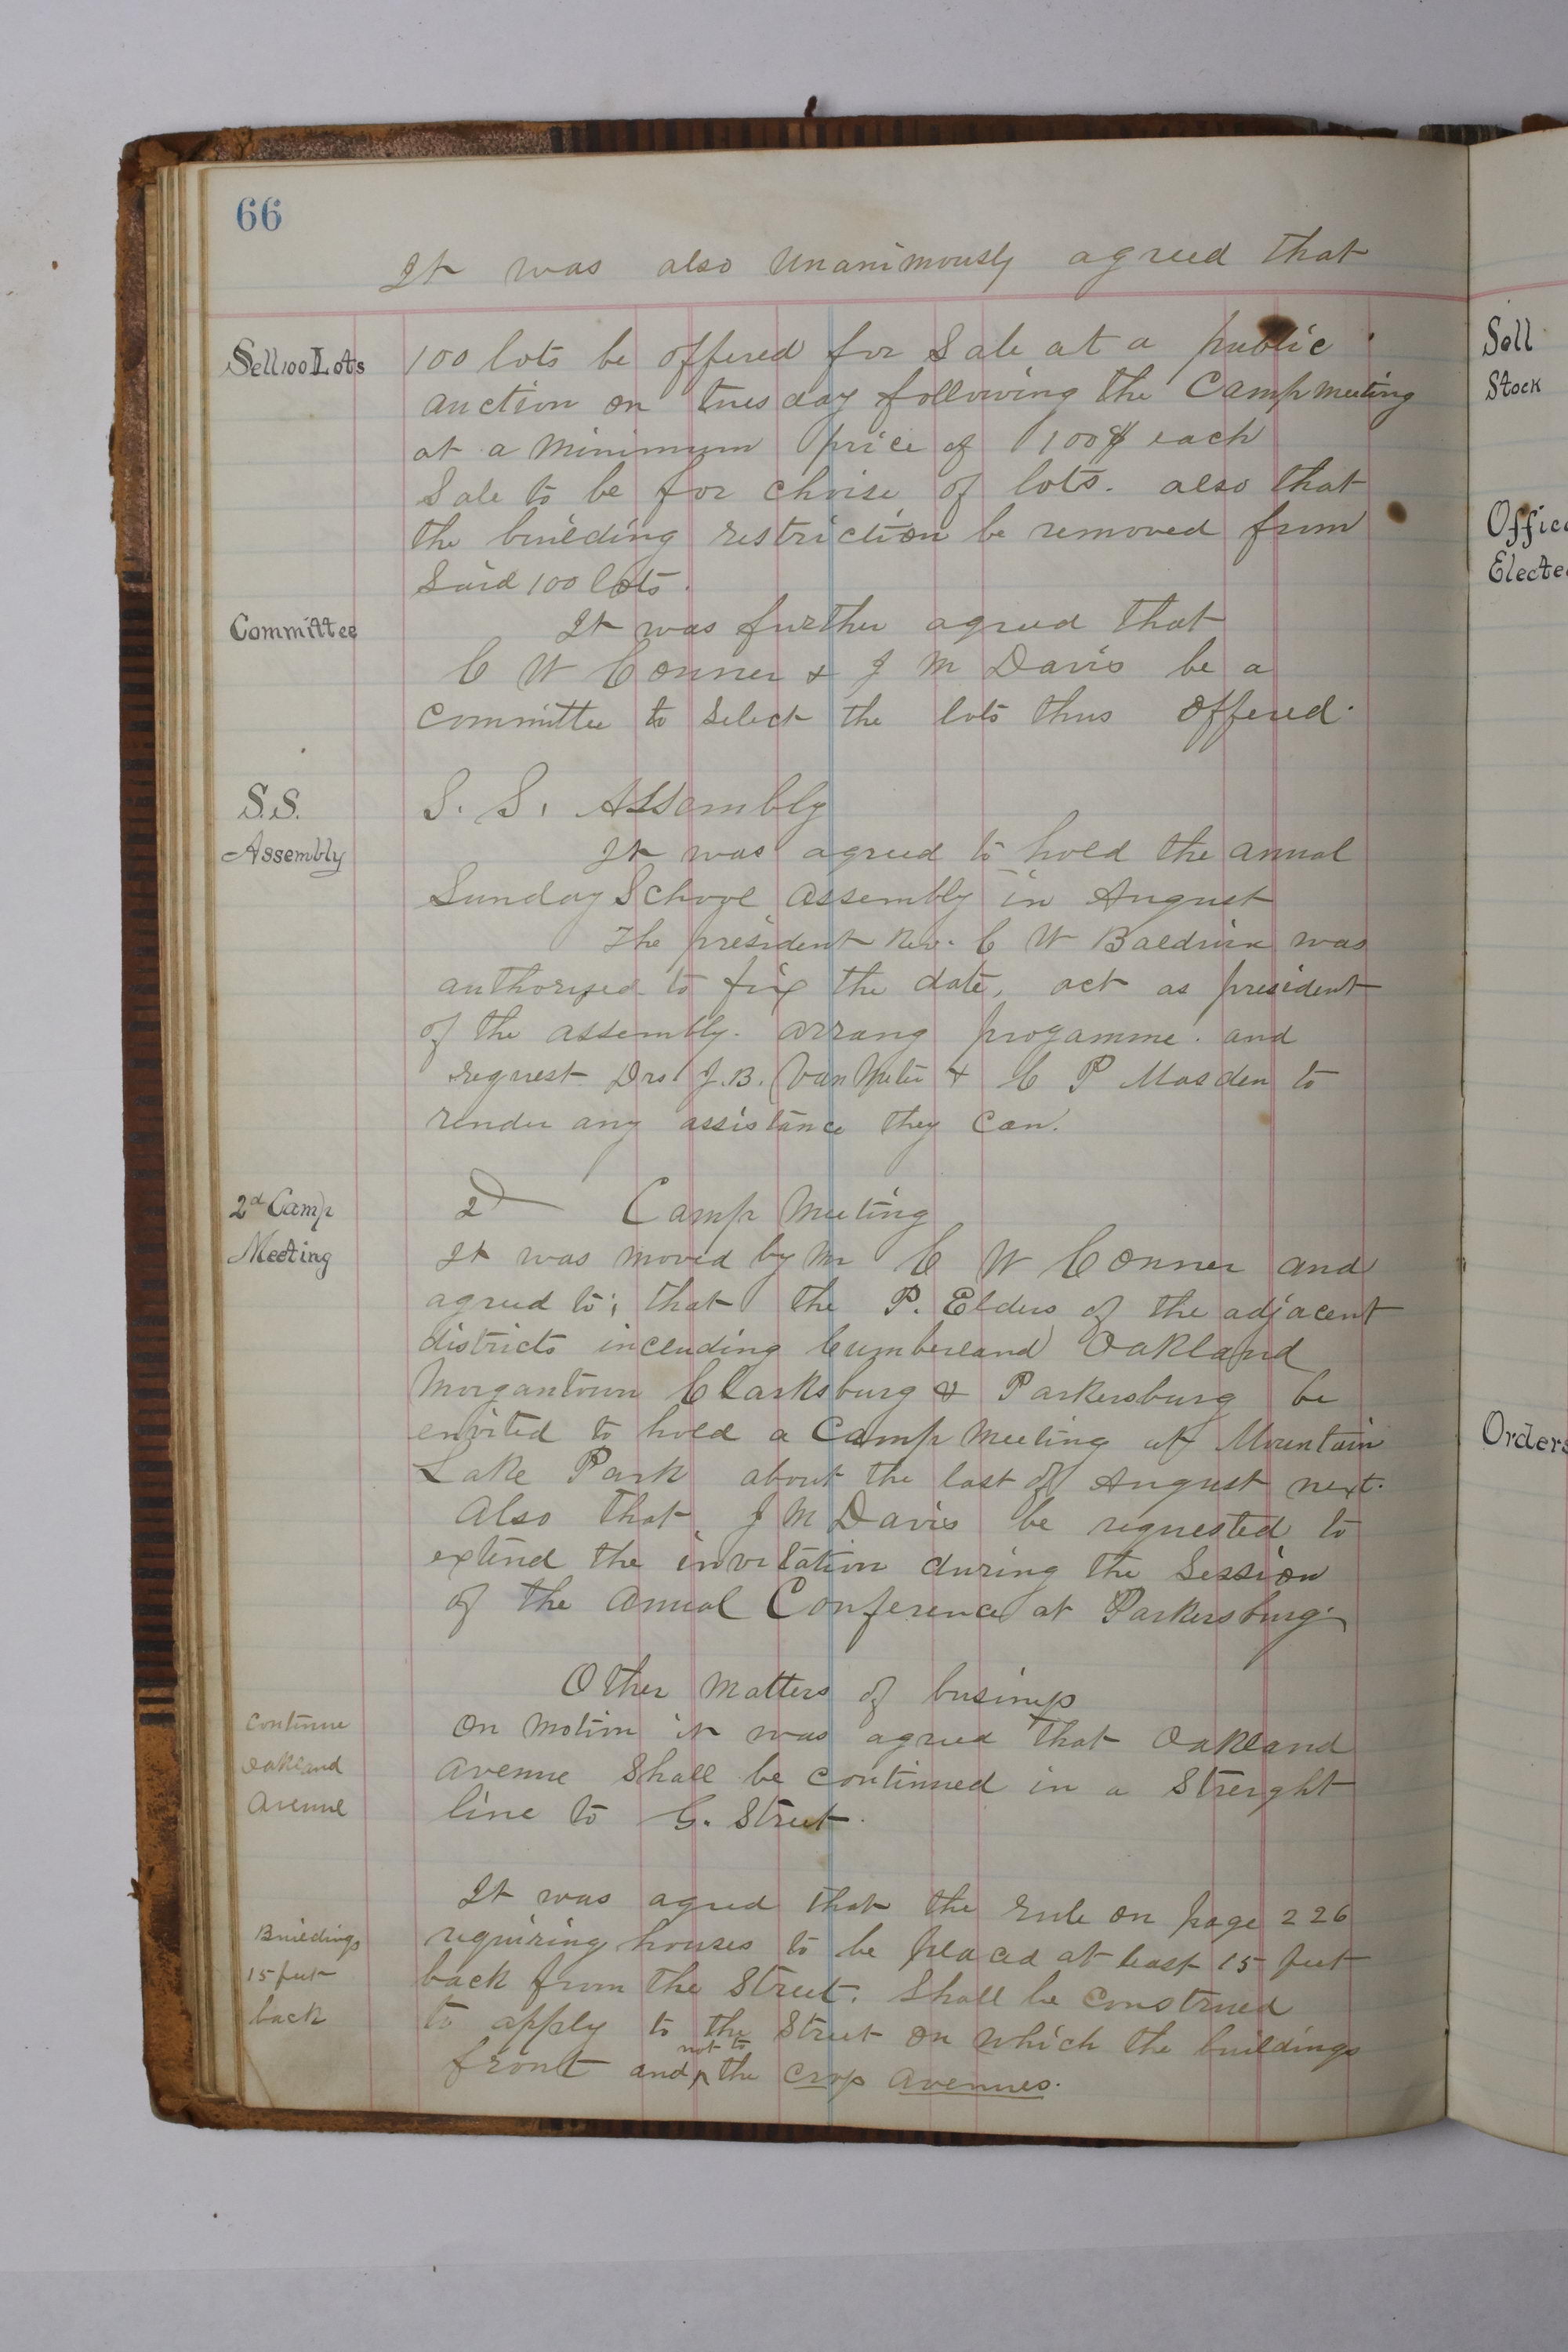 66
It was also unanimously agreed that
Sell 100 Lots
100 lots be offered for Sale at a public
auction on tuesday following the Camp meeting
at a minimum price of 100$ each
Sale to be for choise of lots. also that
the building restriction be removed from
Said 100 lots.
Committee
It was further agreed that
C W Conner & J M Davis be a
Committee to Select the lots thus offered.
S.S.
Assembly
S. S. Assembly
It was agreed to hold the annual
Sunday School assembly in August
The president Rev. C W Baldwin was
authorized to fix the date, act as president
of the assembly. arrang progamme. and
request Drs J.B. Van Meter & C P Masden to
render any assistance they can.
2d Camp
Meeting
2d Camp Meeting
It was moved by Mr C W Conner and
agreed to; that the P. Elders of the adjacent
districts including Cumberland Oakland
Morgantown Clarksburg & Parkersburg be
envited to hold a Camp Meeting at Mountain
Lake Park about the last of August next.
Also that J M Davis be requested to
extend the invitation during the Session
of the Annual Conference at Parkersburg.
Other Matters of business
Continue
Oakland
Avenue
On Motion it was agreed that Oakland
Avenue Shall be continued in a Streight
line to G. Street.
Buildings
15 feet
back
It was agreed that the rule on page 226
requiring houses to be placed at least 15 feet
back from the Street. Shall be construed
to apply to the Street on which the buildings
front and not to the cross avenues.
Sell
Stock
Office
Elected
Orders